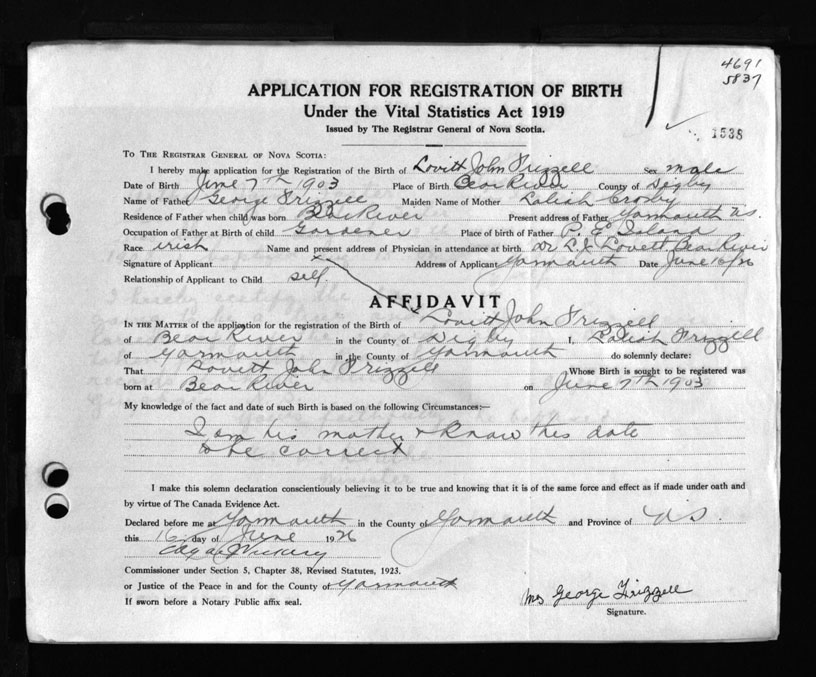 4691
5837
APPLICATION FOR REGISTRATION OF BIRTH
Under the Vital Statistics Act 1919
Issued by The Registrar General of Nova Scotia.
1538
TO THE REGISTRAR GENERAL OF NOVA SCOTIA:
I hereby make application for the Registration of the Birth of Lovitt John Frizzell Sex male
Date of Birth June 7th 1903 Place of Birth Bear River County of Digby
Name of Father George Frizzell Maiden Name of Mother Laliah Crosby
Residence of Father when child was born Bear River Present address of Father Yarmouth NS.
Occupation of Father at Birth of child Gardener Place of birth of Father P. E. Island
Race irish Name and present address of Physician in attendance at birth Dr L. J. Lovett Bear River
Signature of Applicant x Address of Applicant Yarmouth Date June 16/26
Relationship of Applicant to Child self
AFFIDAVIT
IN THE MATTER of the application for the registration of the Birth of Lovitt John Frizzell
of Bear River in the County of Digby I, Laliah Frizzell
of Yarmouth in the County of Yarmouth do solemnly declare:
That Lovitt John Frizzell Whose Birth is sought to be registered was
born at Bear River on June 7th 1903
My knowledge of the fact and date of such Birth is based on the following Circumstances:—
I am his mother & know this date
to be correct
I make this solemn declaration conscientiously believing it to be true and knowing that it is of the same force and effect as if made under oath and
by virtue of The Canada Evidence Act.
Declared before me at Yarmouth in the County of Yarmouth and Province of NS
this 16 day of June 1926
Edgar Vickery
Commissioner under Section 5, Chapter 38, Revised Statutes, 1923.
or Justice of the Peace in and for the County of Yarmouth
If sworn before a Notary Public affix seal.
Mrs George Frizzell
Signature.